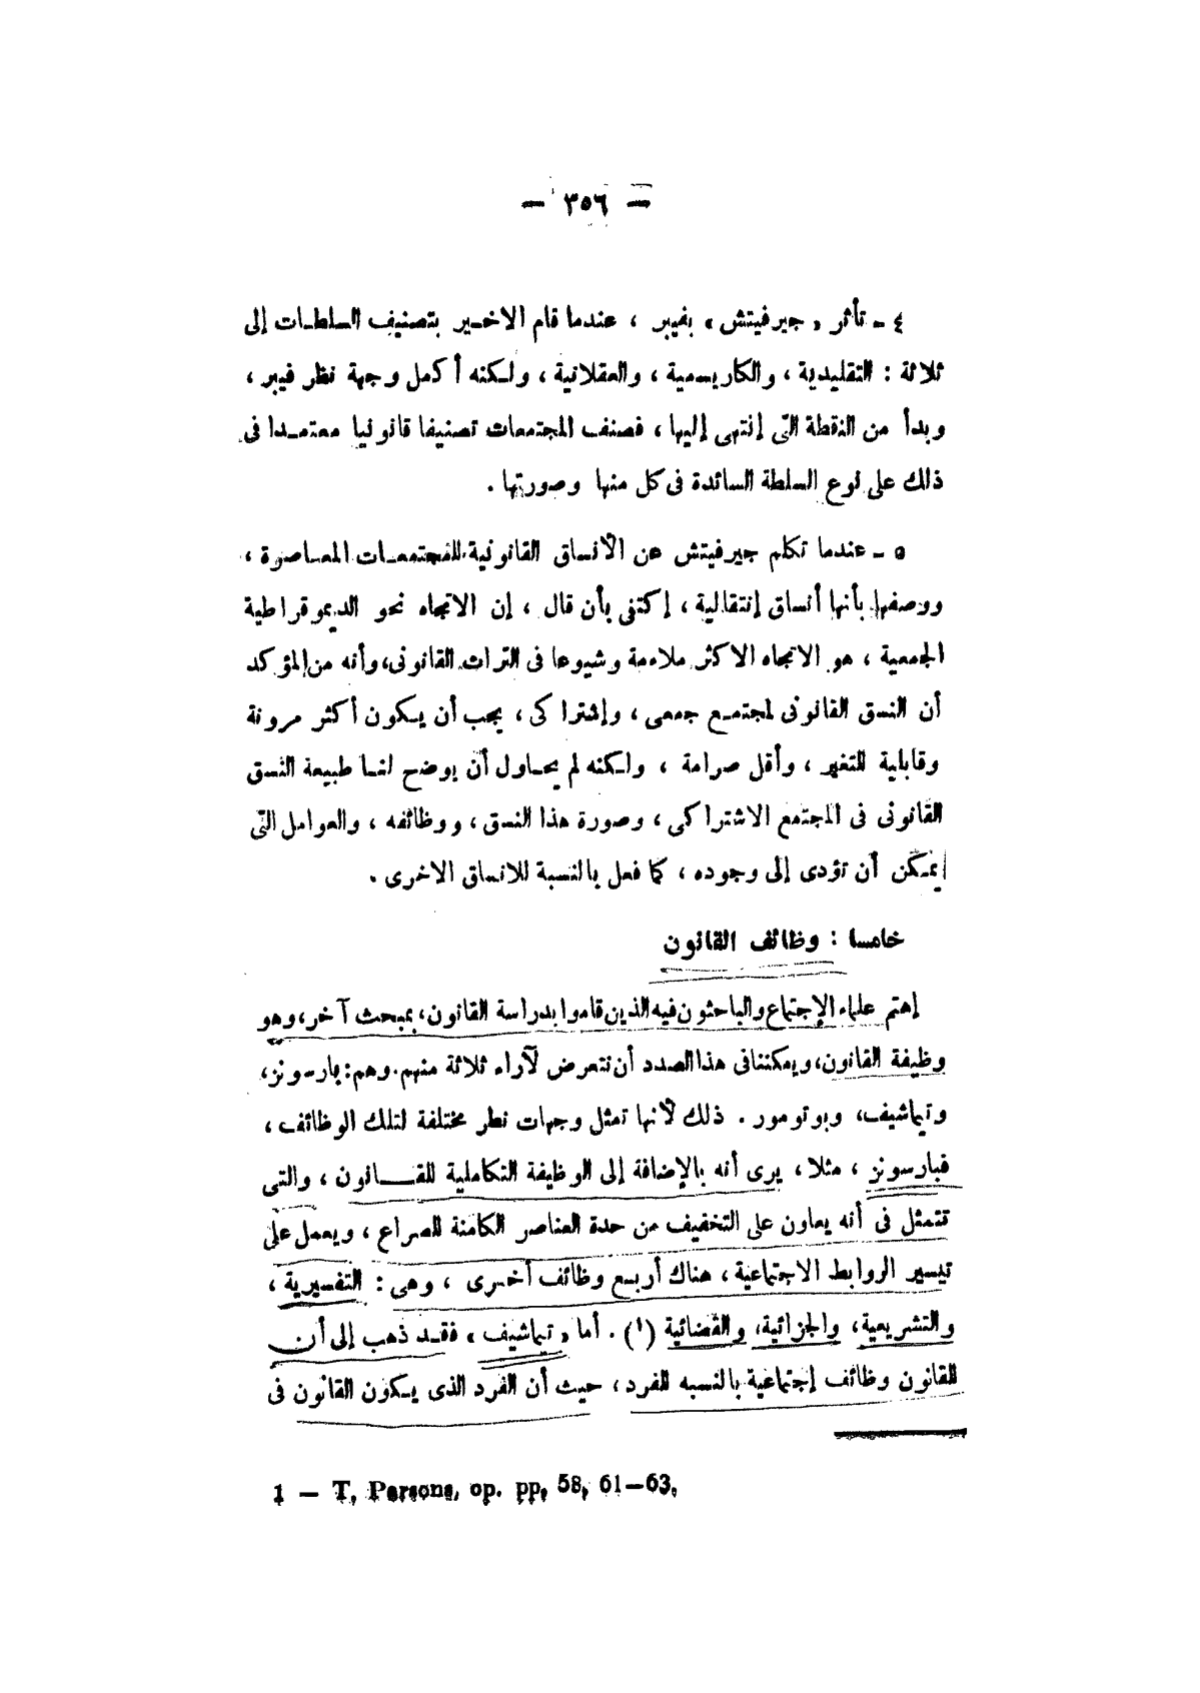 — ٣٥٦ —
٤ ـ تأثر « جيرفيتش » بفيبر ، عندما قام الاخـير بتصنيف السلطـات إلى
ثلاثة : التقليدية ، والكاريسمية ، والعقلانية ، ولكنه أكمل وجهة نظر فيبر ،
وبدأ من النقطة التى إنتهى إليها ، فصنف المجتمعات تصنيفا قانونيا معتمـدا فى
ذلك على نوع السلطة السائدة فى كل منها وصورتها .
٥ ـ عندما تكلم جيرفيتش عن الأنساق القانونية للمجتمعـات المعـاصرة ،
ووصفها بأنها أنساق إنتقالية ، إكتفى بأن قال ، إن الاتجاه نحو الديموقراطية
الجمعية ، هو الاتجاه الاكثر ملاءمة وشيوعا فى التراث القانونى، وأنه من المؤكد
أن النسق القانونى لمجتمـع جمعى ، وإشتراكى ، يجب أن يـكون أكثر مرونة
وقابلية للتغير ، وأقل صرامة ، ولـكنه لم يحـاول أن يوضح لنـا طبيعة النسق
القانونى فى المجتمع الاشتراكى ، وصورة هذا النسق ، ووظائفه ، والعوامل التى
يمـكن أن تؤدى إلى وجوده ، كما فعل بالنسبة للانساق الاخرى .
خامسا : وظائف القانون
إهتم علماء الإجتماع والباحثون فيه الذين قاموا بدراسة القانون، بمبحث آخر، وهو
وظيفة القانون، ويمكننا فى هذا الصدد أن نتعرض لآراء ثلاثة منهم. وهم: بارسونز،
وتيماشيف، وبوتومور . ذلك لأنها تمثل وجهات نظر مختلفة لتلك الوظائف ،
فبارسونز ، مثلا ، يرى أنه بالإضافة إلى الوظيفة التكاملية للقــــانون ، والتى
تتمثل فى أنه يعاون على التخفيف من حدة العناصر الكامنة للصراع ، ويعمل على
تيسير الروابط الاجتماعية ، هناك أربـع وظائف أخـرى ، وهى : التفسيرية ،
والتشريعية، والجزائية، والقضائية (١) . أما « تيماشيف » فقـد ذهب إلى أن
للقانون وظائف إجتماعية بالنسبه للفرد ، حيث أن الفرد الذى يـكون القانون فى
1 — T. Parsons, op. pp. 58, 61—63.